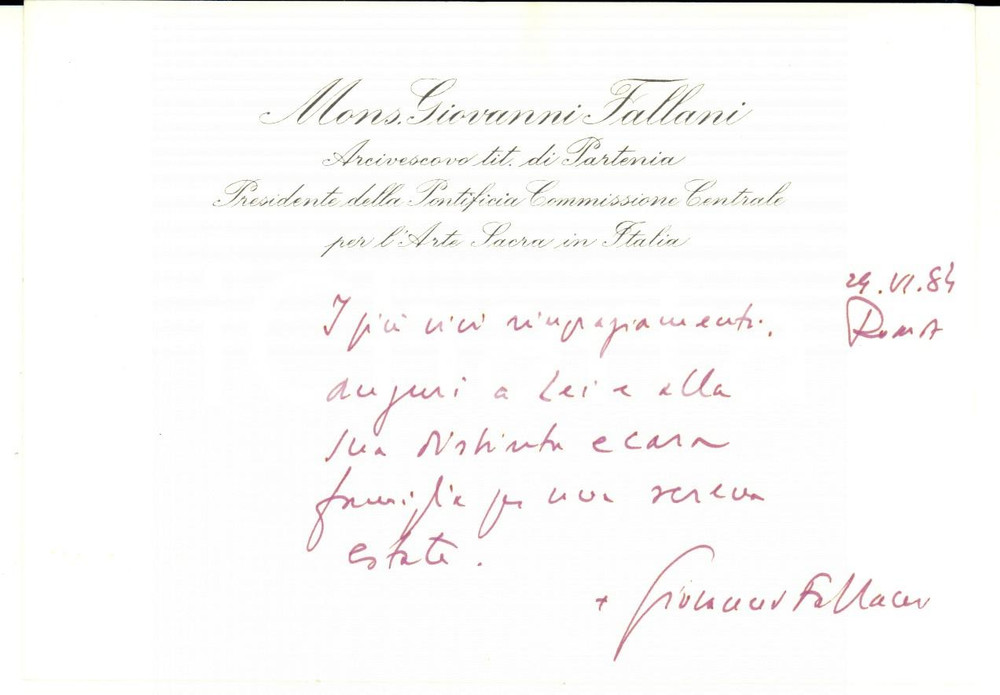 Mons. Giovanni Fallani
Arcivescovo tit. di Partenia
Presidente della Pontificia Commissione Centrale
per l'Arte Sacra in Italia
29.VI.84
Roma
I più vivi ringraziamenti.
auguri a Lei e alla
Sua distinta e cara
famiglia per una serena
estate.
+ Giovanni Fallani